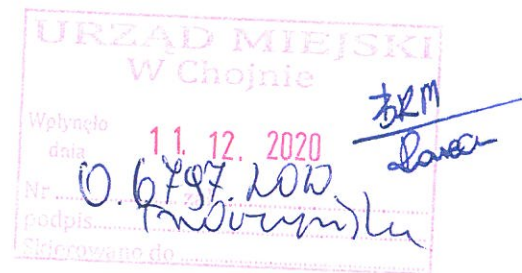 URZĄD MIEJSKI
W Chojnie
BRM
Wpłynęło
dnia 11. 12. 2020
Nr O.6797.2020 zał.
podpis
Skierowano do